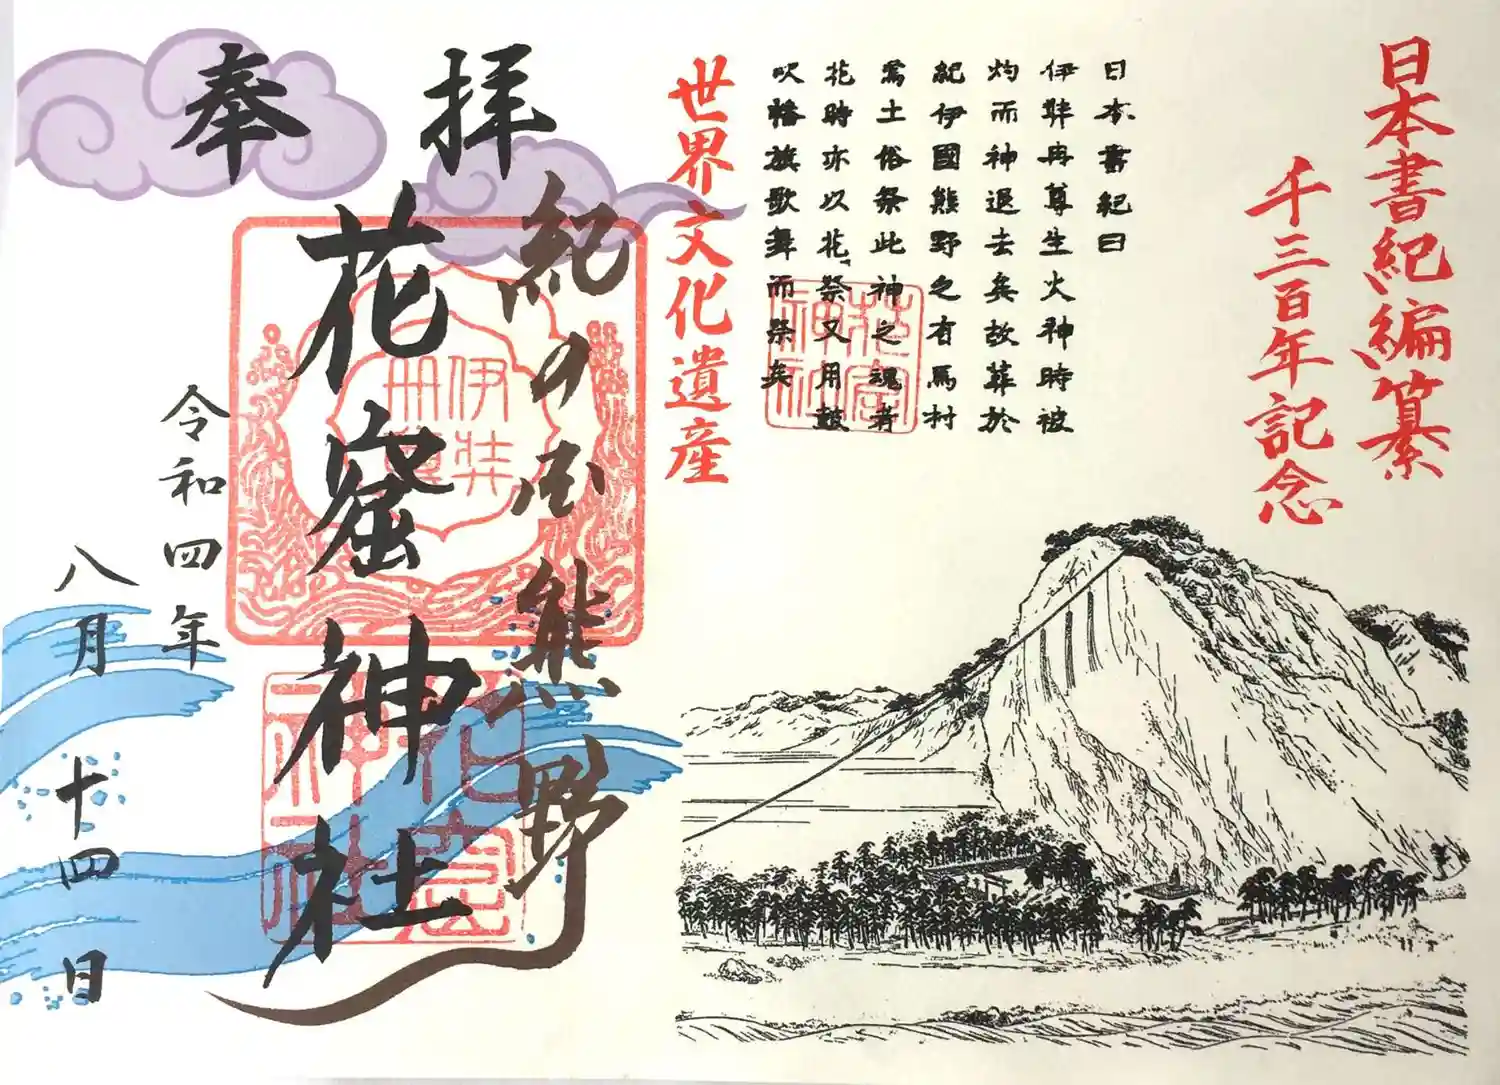 日本書紀編纂
千三百年記念
日本書紀曰
伊弉冉尊生火神時被
灼而神退去矣故葬於
紀伊國熊野之有馬村
焉土俗祭此神之魂者
花時亦以花祭又用鼓
吹幡旗歌舞而祭矣
花窟
神社
世界文化遺産
奉拝
紀の国熊野
花窟神社
伊弉
冊尊
花窟
神社
令和四年
八月十四日